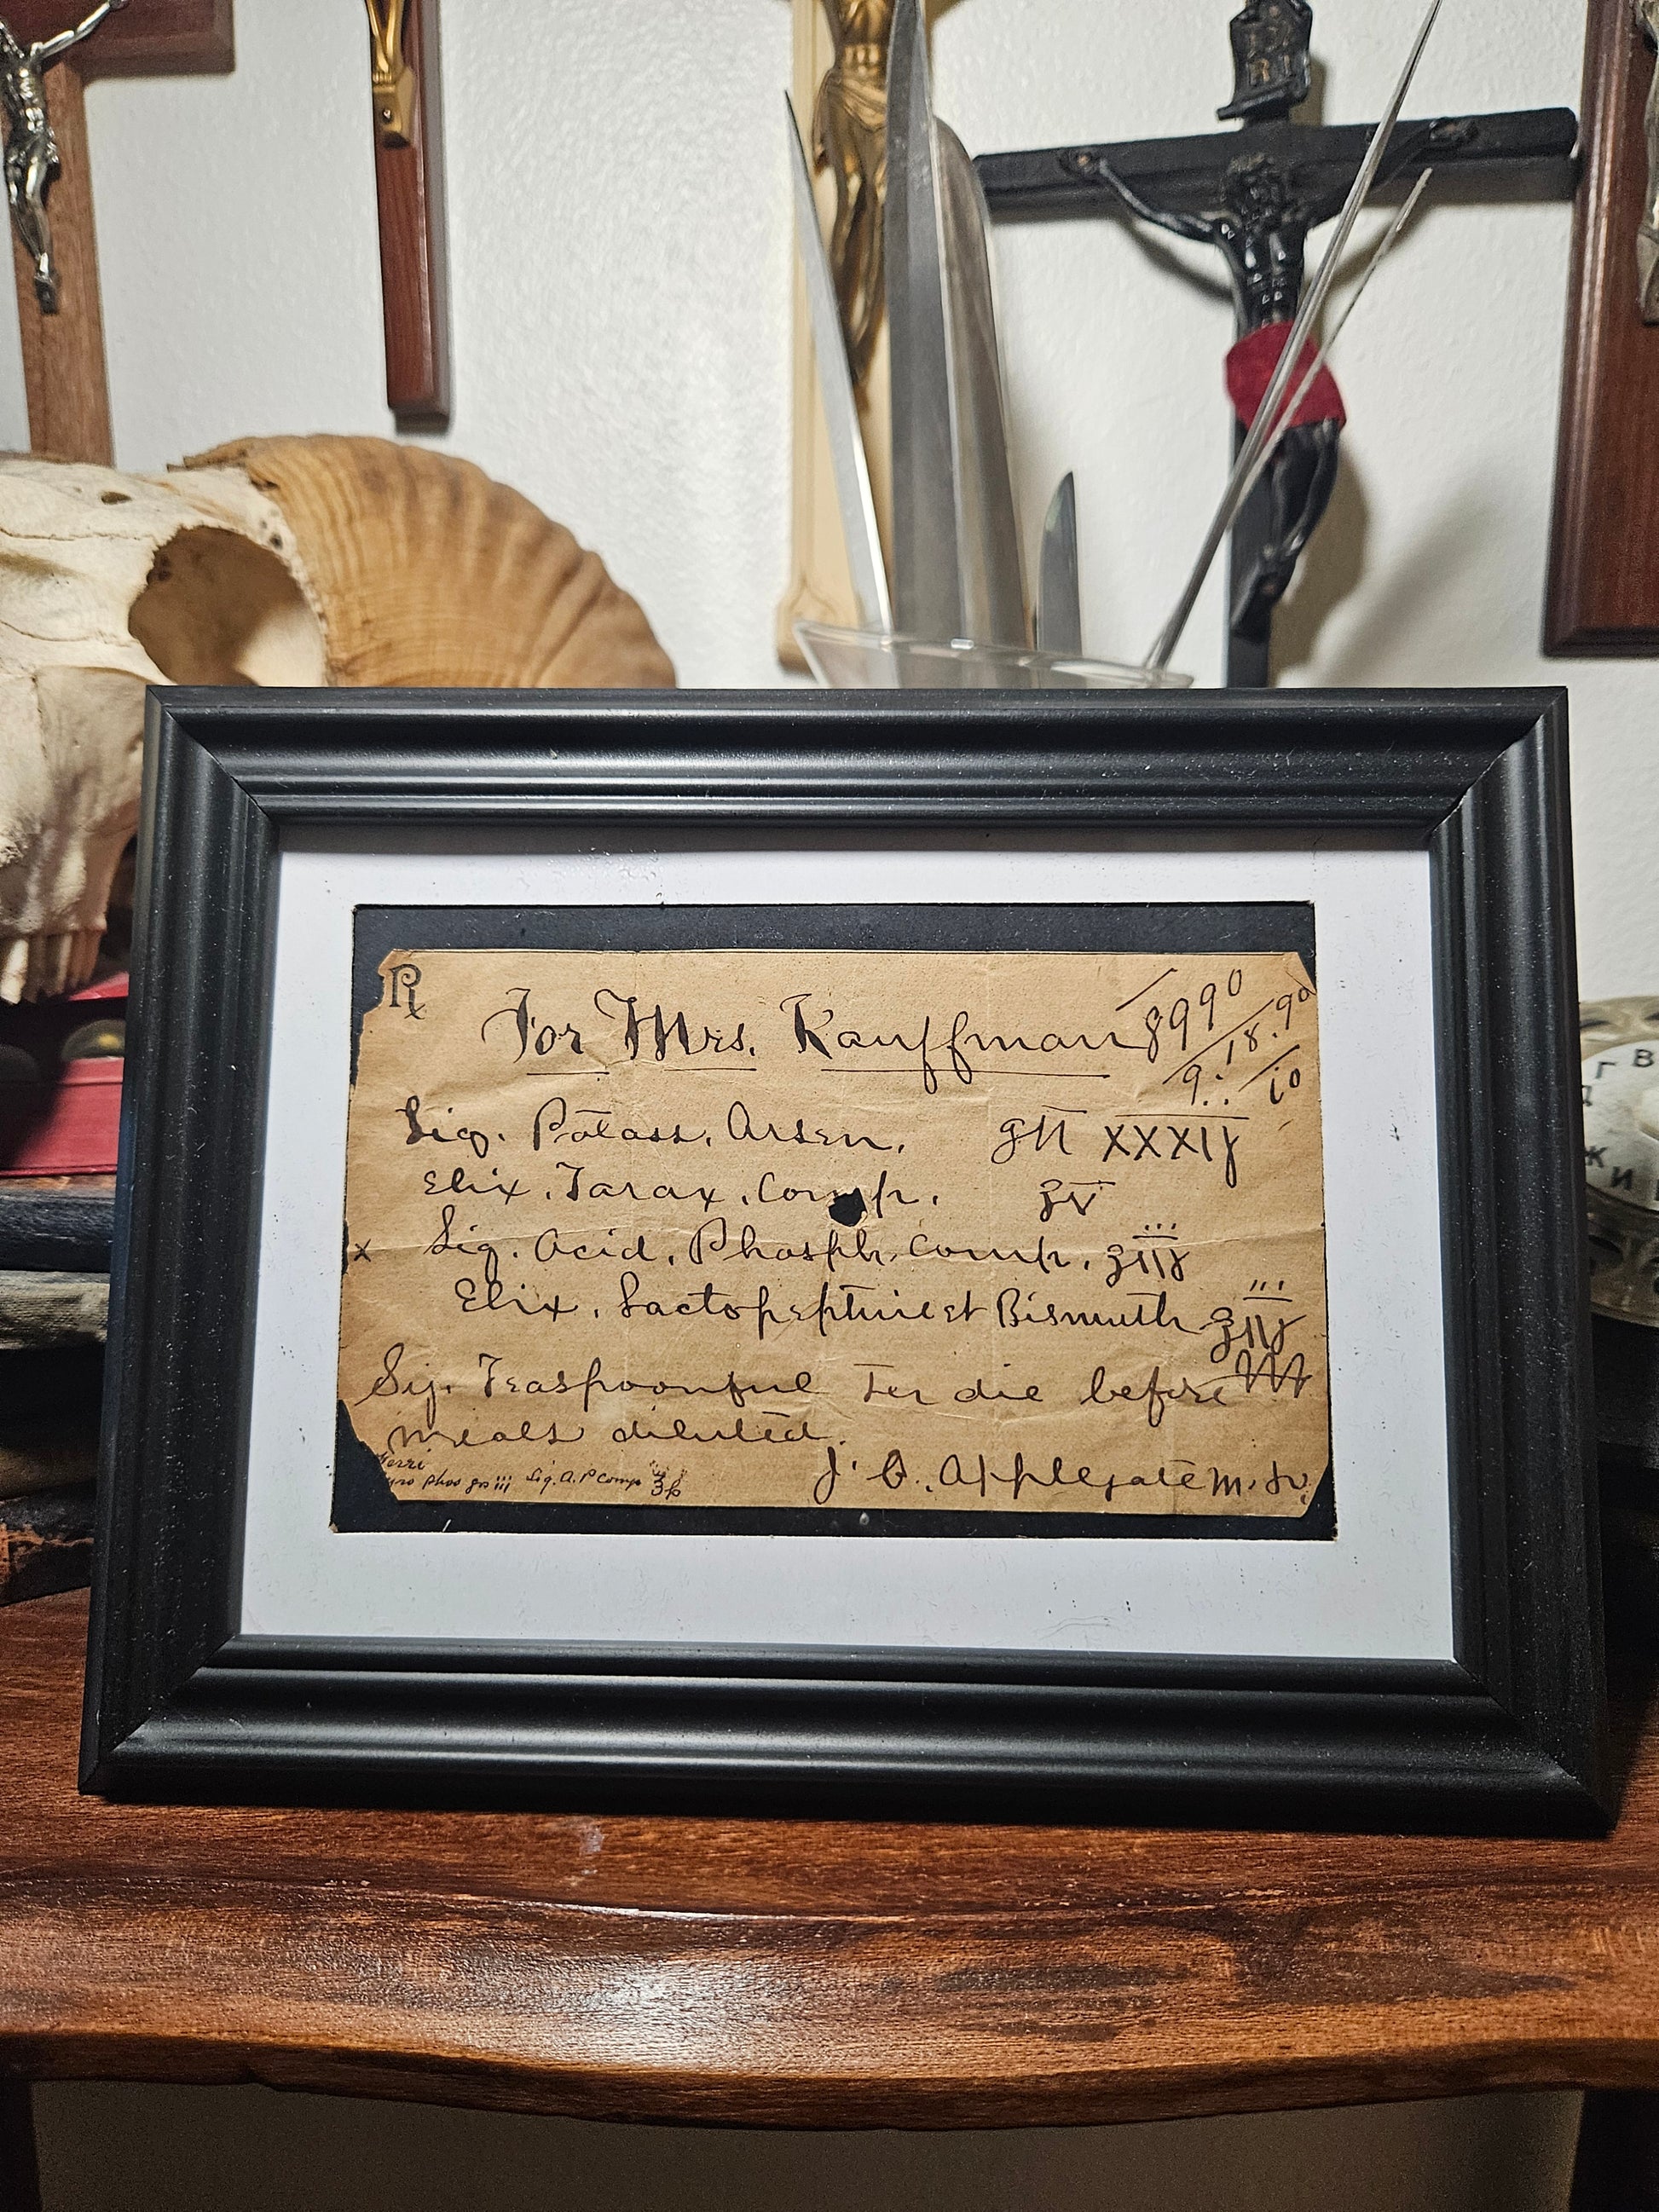 INRI
Rx
For Mrs. Kauffman 8990
9.18.90
10
Liq. Potass. Arsen. gtt XXXIJ
Elix. Tarax. Comp. ʒv
x Liq. Acid. Phosph. Comp. ʒiij
Elix. Lactopeptine et Bismuth ʒiij
Sig. Teaspoonful Ter die before
meals diluted.
Ferri
phos grs iii Liq. A. P Comp
J. Applegate M.D.
Г В
Ж И